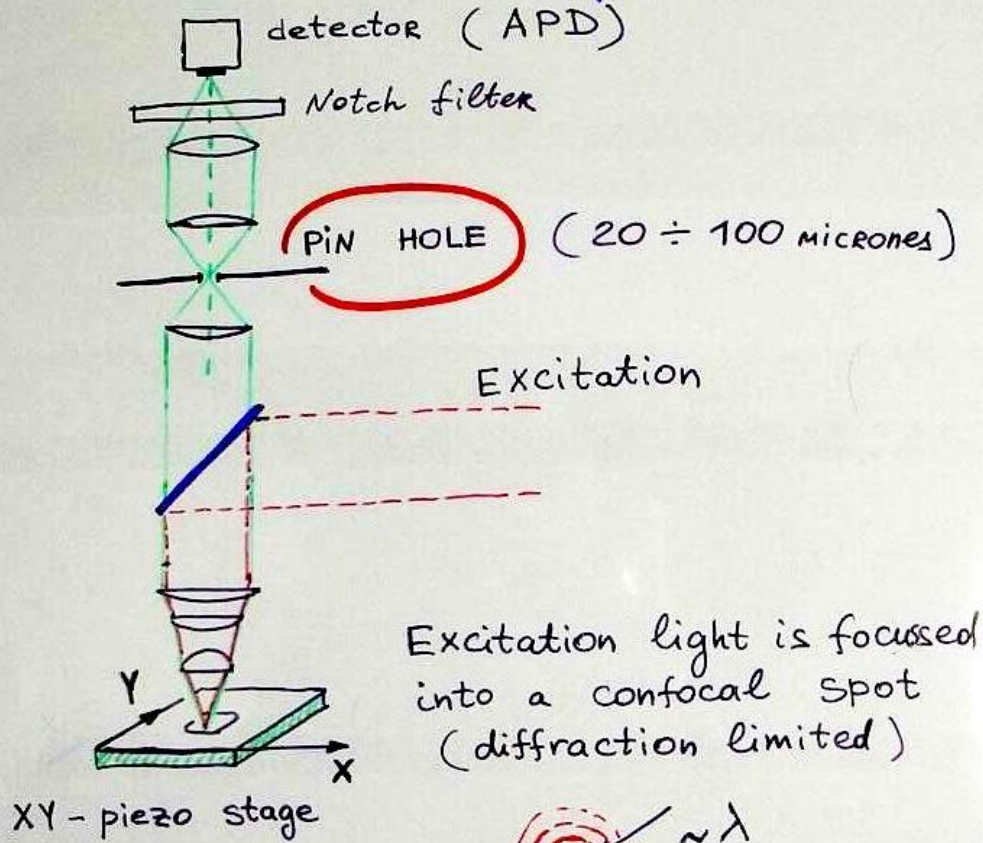 detector (APD)
Notch filter
PIN HOLE (20 ÷ 100 MICRONES)
Excitation
Excitation light is focussed
into a confocal spot
(diffraction limited)
Y
X
XY - piezo stage
~ λ